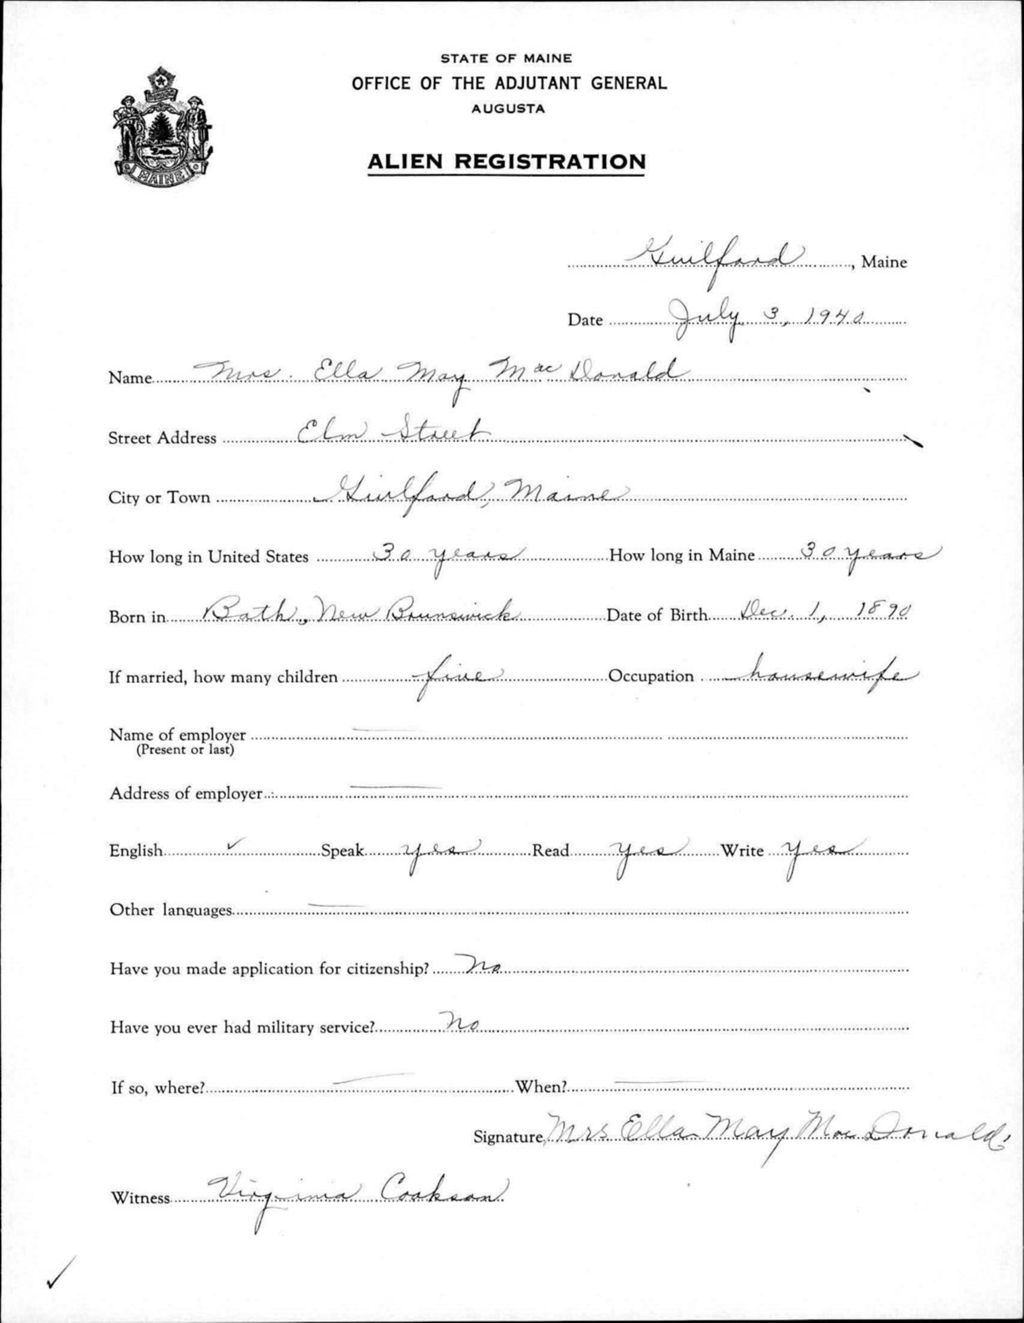 STATE OF MAINE
OFFICE OF THE ADJUTANT GENERAL
AUGUSTA
MAINE
ALIEN REGISTRATION
Guilford, Maine
Date July 3, 1940
Name Mrs. Ella May MacDonald
Street Address Elm Street
City or Town Guilford, Maine
How long in United States 30 years How long in Maine 30 years
Born in Bath, New Brunswick Date of Birth Dec. 1, 1890
If married, how many children five Occupation housewife
Name of employer
(Present or last)
Address of employer
English ✓ Speak yes Read yes Write yes
Other languages
Have you made application for citizenship? No
Have you ever had military service? No
If so, where? When?
Signature Mrs Ella May MacDonald
Witness Virginia Cookson
✓